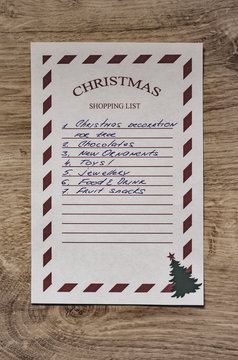 CHRISTMAS
SHOPPING LIST
1. Christmas decoration
for tree
2. Chocolates
3. New Ornaments
4. Toys!
5. Jewellery
6. Food & Drink
7. Fruit snacks